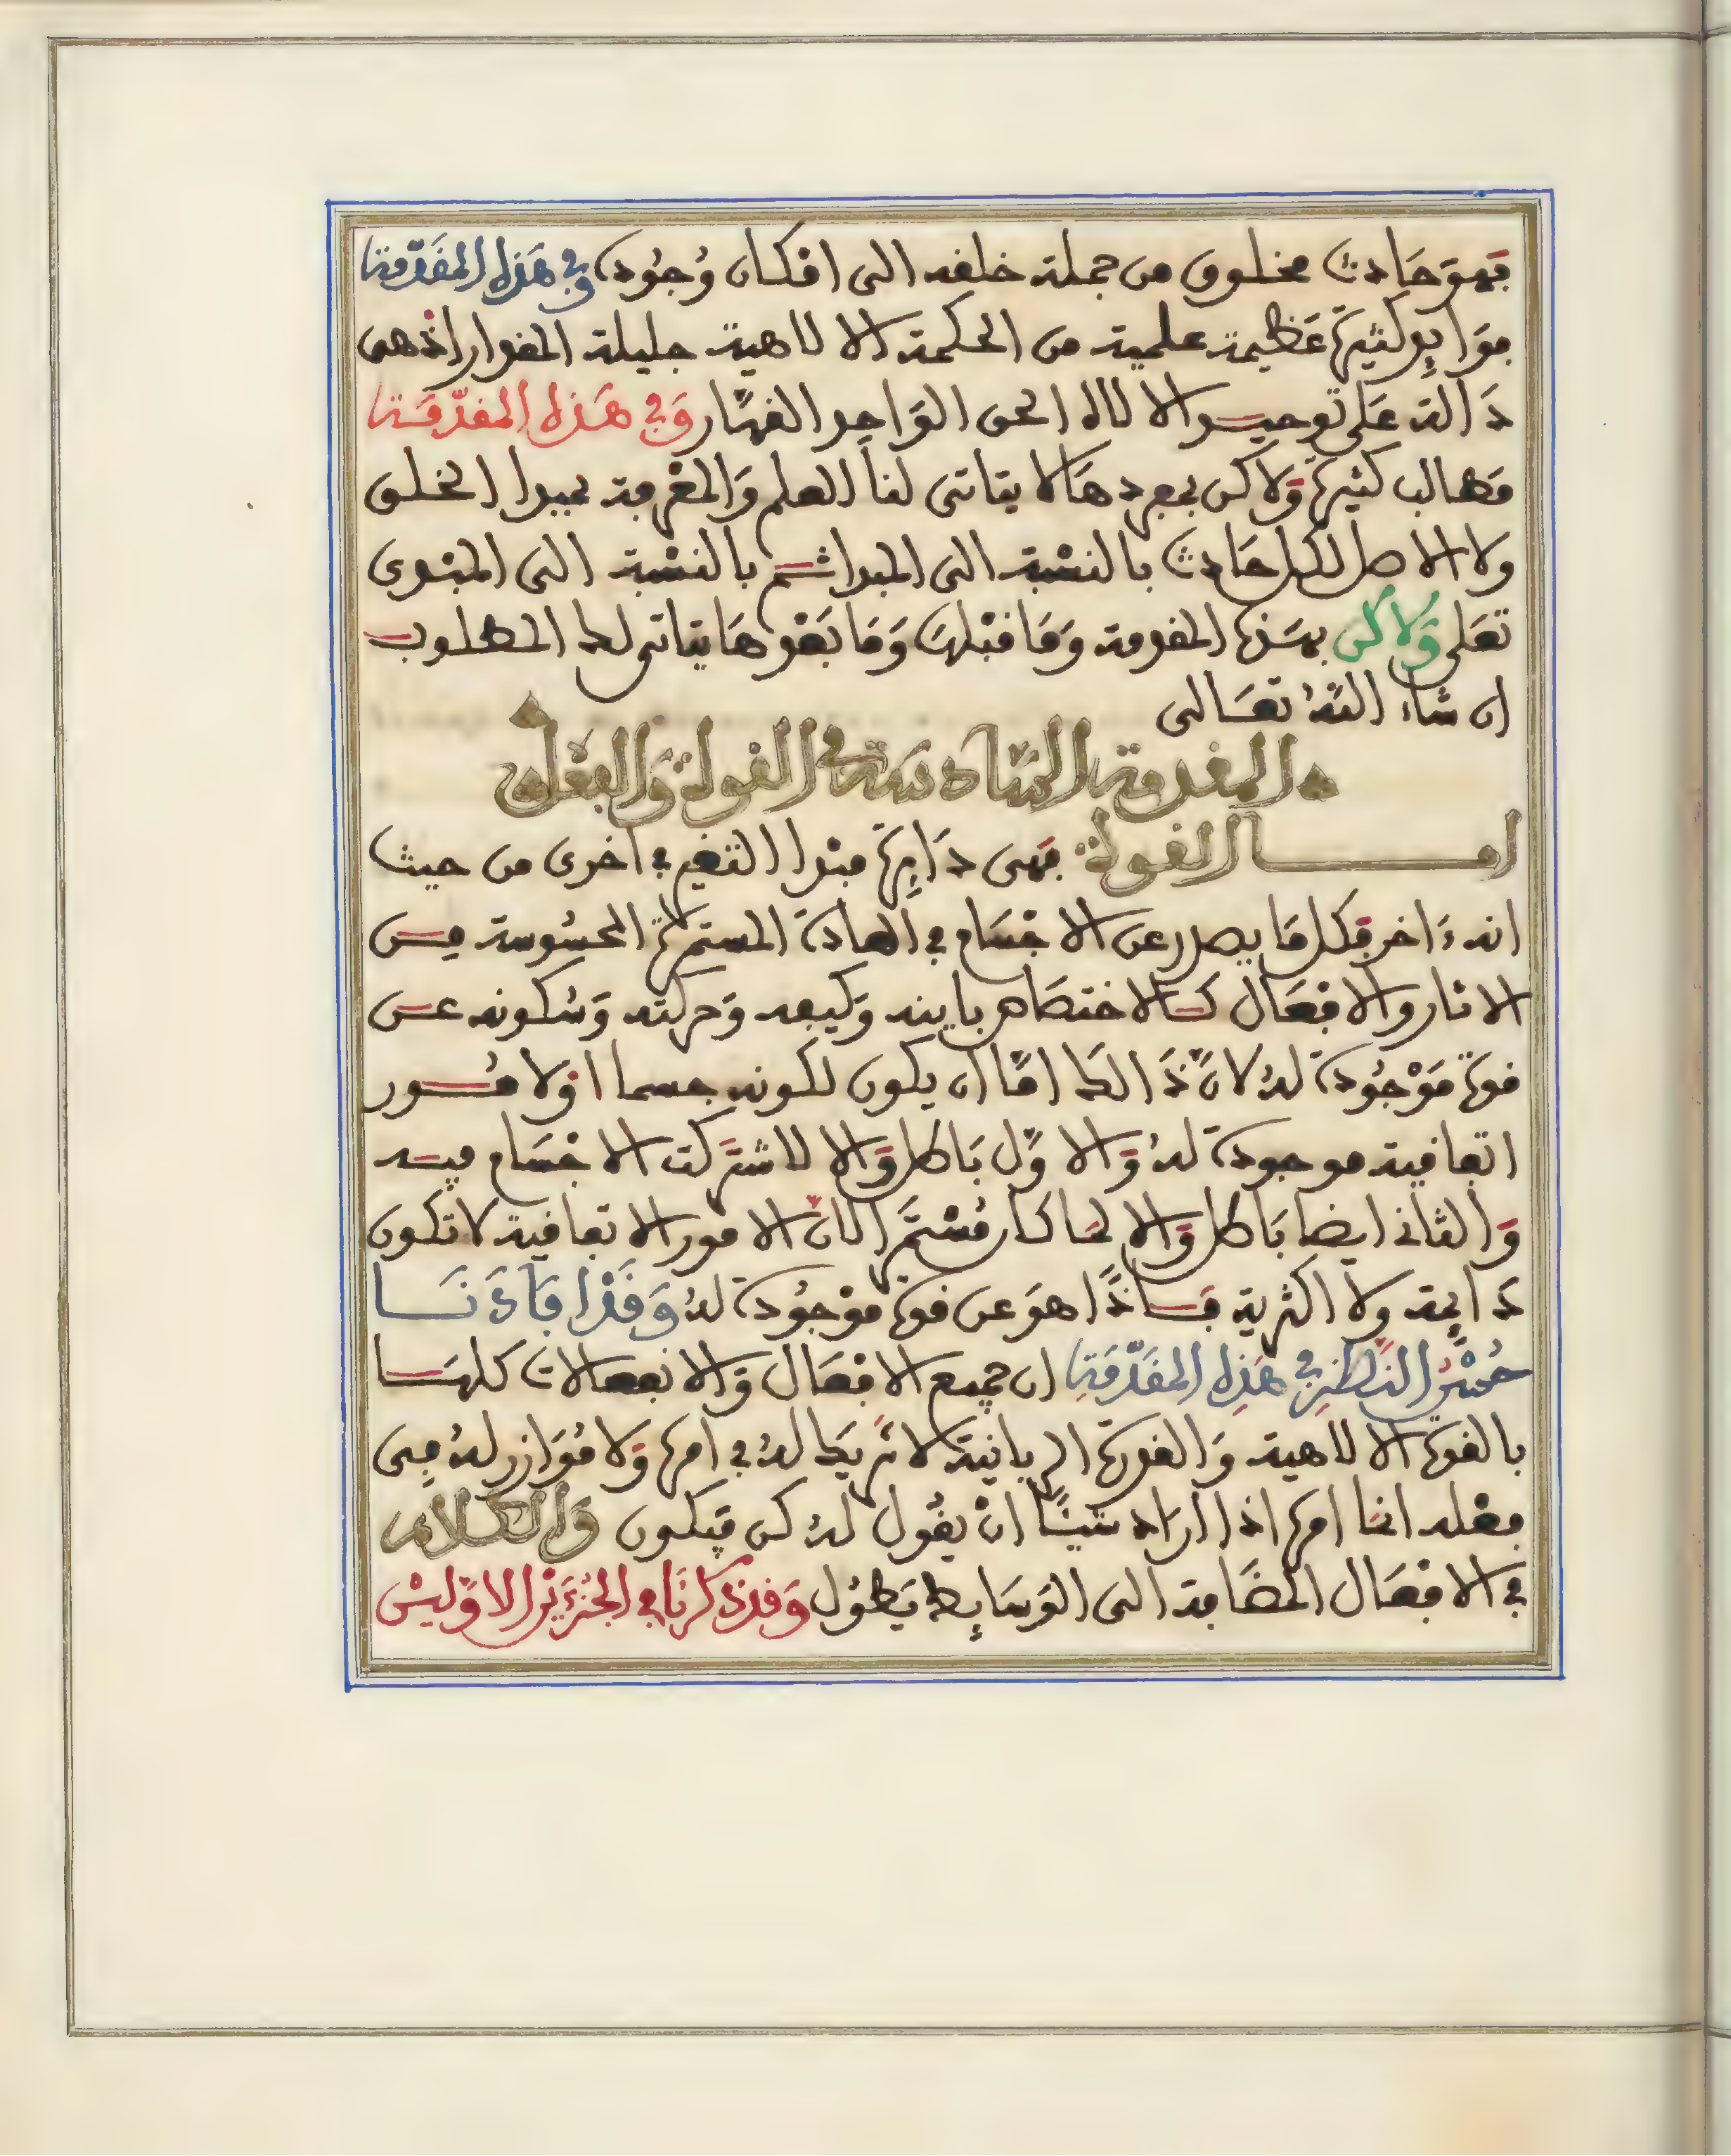 فهو حادث مخلوق من جملة خلقه الى امكان وجوده وفي هذه المقدمة
فوايد كثيرة عظيمة علمية من الحكمة الالاهية جليلة المقدار اذ هى
دالة على توحيد الالاه الحق الواحد القهار وفي هذه المقدمة
مطالب كثيرة ولاكن بمجردها لا يتاتى لنا العلم والمعرفة بمبدا الخلق
ولا الاصل لكل حادث بالنسبة الى المبدا ثم بالنسبة الى المبدى
تعلى ولاكن بهذه المقدمة وما قبلها وما بعدها يتاتى لك المطلوب
ان شاء الله تعالى
المقدمة السادسة في القوة والفعل
اما القوة فهى داىرة مبدا التغير في اخرى من حيث
انه ءاخر فكل ما يصدر عن الاجسام في العادة المستمرة المحسوسة من
الاثار والافعال كالاختصاص باينه وكيفه وحركته وسكونه عن
قوة موجودة له لان ذالك اما ان يكون لكونه جسما او لامور
اتفاقية موجودة له والاول باطل والا لاشتركت الاجسام فيه
والثانى ايضا باطل والا لما كان مستمرا لان الامور الاتفاقية لا تكون
دايمة ولا اكثرية فاذا هو عن قوة موجودة له وقد افادنا
حسن النظر في هذه المقدمة ان جميع الافعال والانفعالات كلها
بالقوة الالاهية والقدرة الربانية لا شريك له في امره ولا موازر له في
فعله انما امره اذا اراد شيئا ان يقول له كن فيكون والكلام
في الافعال المضافة الى الوسايط يطول وقد ذكرنا في الجزءين الاولين